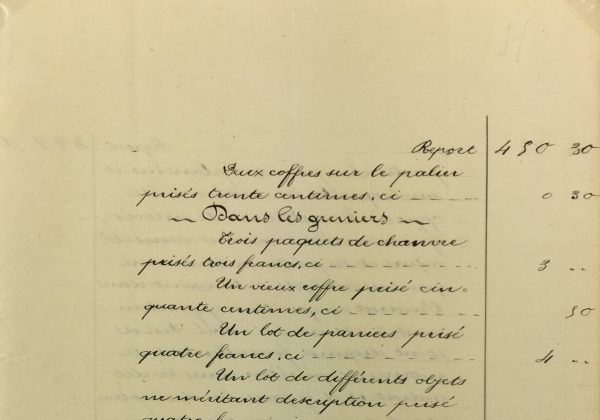 Report 450 30
Deux coffres sur le palier
prisés trente centimes, ci 0 30
Dans les greniers
Trois paquets de chanvre
prisés trois francs, ci 3 ..
Un vieux coffre prisé cin=
quante centimes, ci 50
Un lot de paniers prisé
quatre francs, ci 4 ..
Un lot de différents objets
ne méritant description prisé
quatre